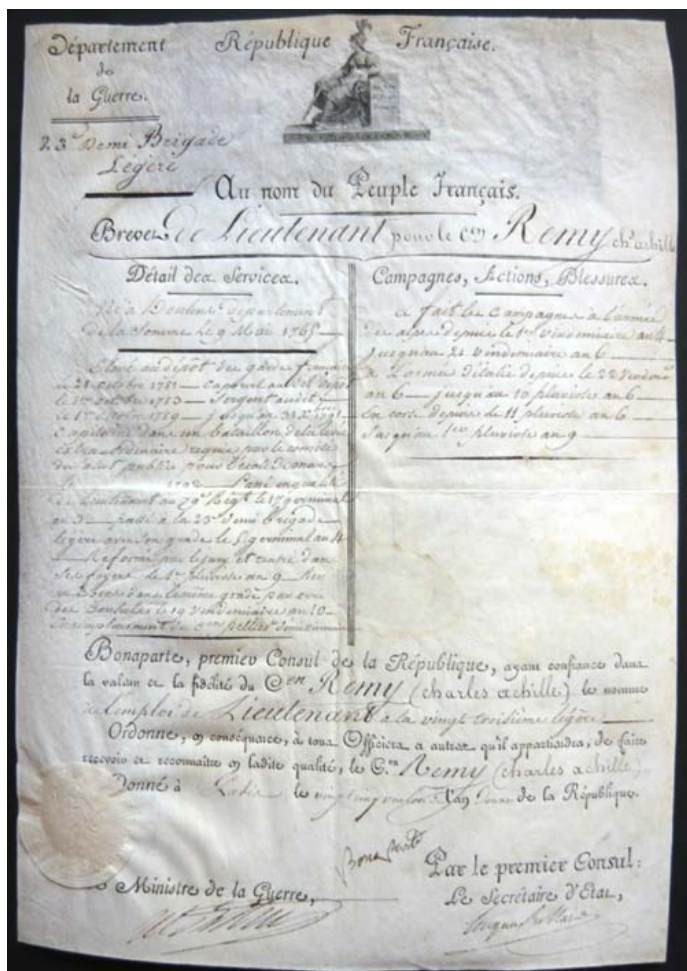 Département
de
la Guerre.
République Française.
23e Demi Brigade
Légère
Au nom du Peuple Français.
Brevet de Lieutenant pour le Cen Remy ch. achille
Détail des Services.
Né à Doulens département
de la Somme le 9 Mai 1765
Entré au dépôt des gardes
le 21 octobre 1781 caporal audit dépôt
le 1er octobre 1783 Sergent audit
le 1er 1789 jusqu'au 31 Xbre 1791
Capitaine dans un bataillon de la levée
extraordinaire requise par le comité
du salut public pour
Passé en qualité
de Lieutenant au 79e Régt le 17 germinal
an 3 passé à la 23e demi brigade
légère avec son grade le germinal an 4
Réformé par le jury et rentré dans
ses foyers le 1er pluviose an 9
dans le même grade par
des Consuls le 19 vendemiaire an 10
en remplacement du Cen pellier
Campagnes, Actions, Blessures.
a fait les campagnes à l'armée
des alpes depuis le 1er vendemiaire an 4
jusqu'au 21 vendemiaire an 6
a l'armée d'italie depuis le 22 vendre
an 6 jusqu'au 10 pluviose an 6
En corse depuis le 11 pluviose an 6
jusqu'au 1er pluviose an 9
Bonaparte, premier Consul de la République, ayant confiance dans
la valeur et la fidélité du Cen Remy (charles achille) le nomme
à l'emploi de Lieutenant à la vingt troisième légère
Ordonne, en conséquence, à tous Officiers et autres qu'il appartiendra, de faire
recevoir et reconnaître en ladite qualité, le Cen Remy (charles achille)
Donné à Paris le vingt cinq l'an de la République.
Bonaparte
Par le premier Consul:
Le Ministre de la Guerre,
Le Secrétaire d'Etat,